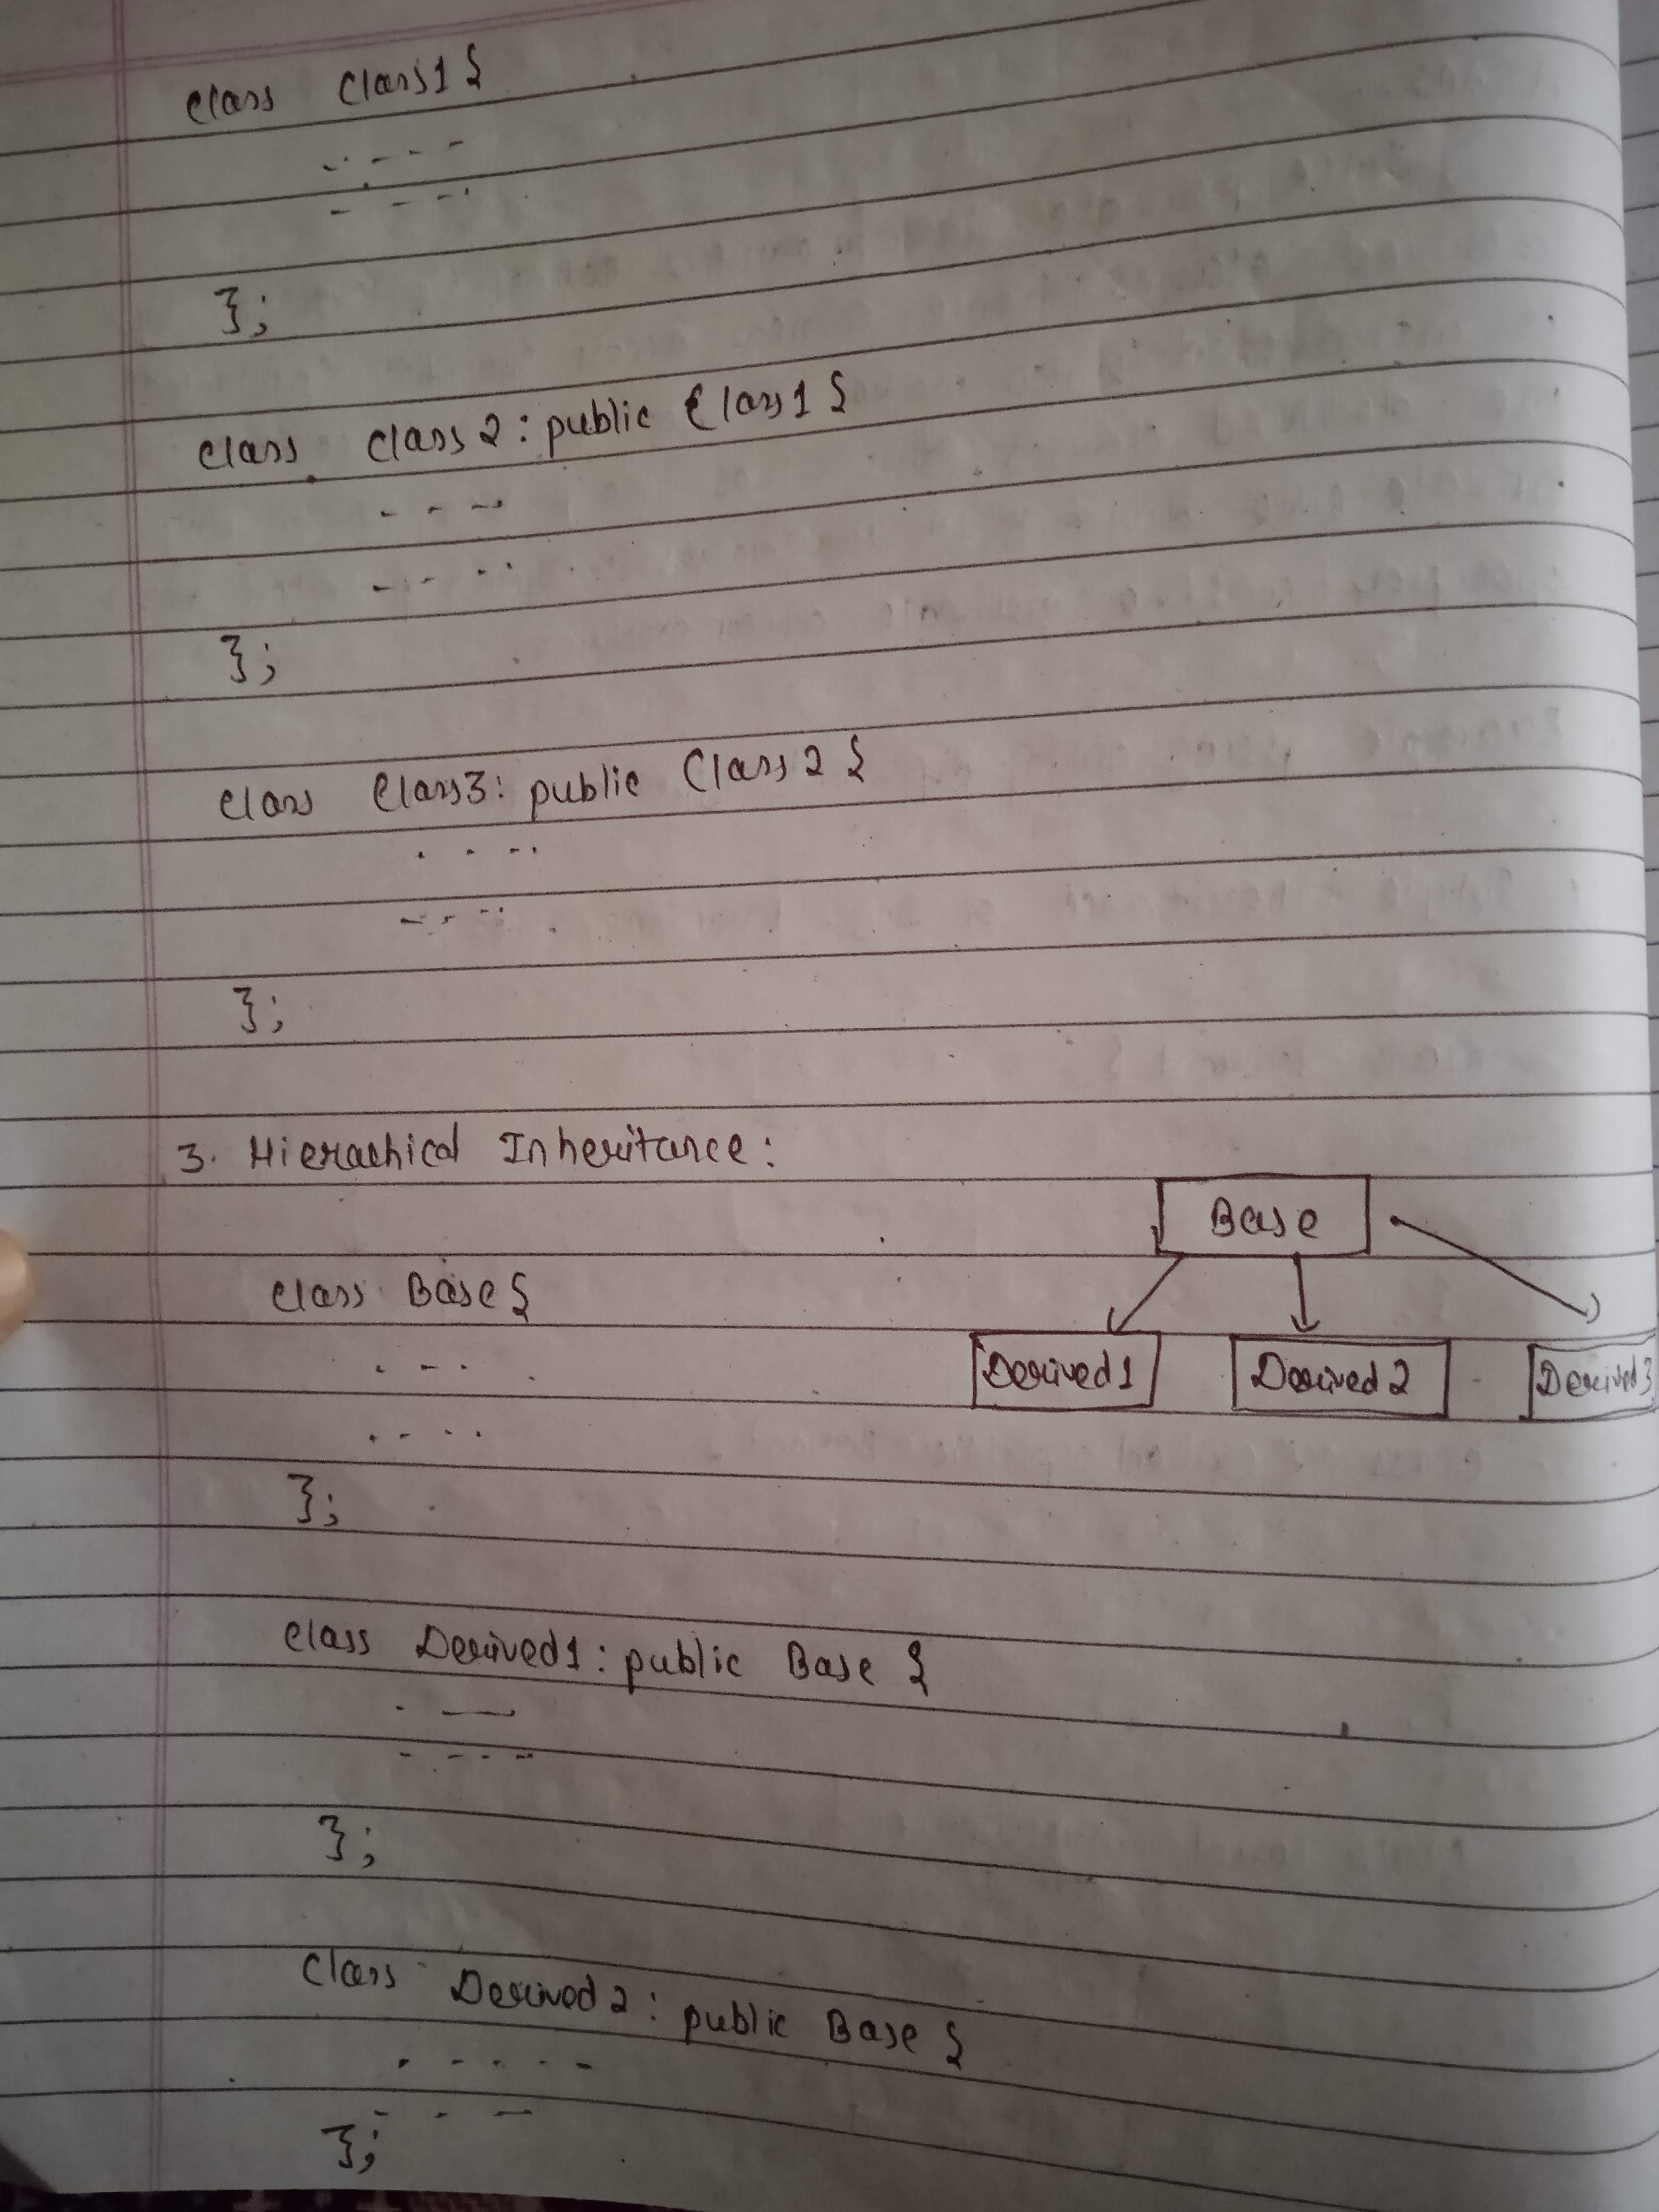 class Class1 {
- - - - -
- - - -
};
class class2 : public Class1 {
- - - -
- - - -
};
class Class3 : public Class2 {
- - - -
- - - -
};
3. Hierachical Inheritance :
Base
class Base {
Derived1 Derived2 Derived3
- - -
- - - -
};
class Derived1 : public Base {
- —
- - - -
};
class Derived2 : public Base {
- - - - -
- - -
};